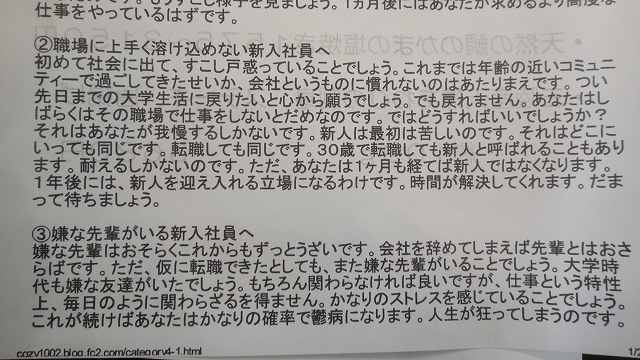 仕事をやっているはずです。
②職場に上手く溶け込めない新入社員へ
初めて社会に出て、すこし戸惑っていることでしょう。これまでは年齢の近いコミュニ
ティーで過ごしてきたせいか、会社というものに慣れないのはあたりまえです。つい
先日までの大学生活に戻りたいと心から願うでしょう。でも戻れません。あなたはし
ばらくはその職場で仕事をしないとだめなのです。ではどうすればいいでしょうか？
それはあなたが我慢するしかないです。新人は最初は苦しいのです。それはどこに
いっても同じです。転職しても同じです。３０歳で転職しても新人と呼ばれることもあり
ます。耐えるしかないのです。ただ、あなたは１ヶ月も経てば新人ではなくなります。
１年後には、新人を迎え入れる立場になるわけです。時間が解決してくれます。だま
って待ちましょう。
③嫌な先輩がいる新入社員へ
嫌な先輩はおそらくこれからもずっとうざいです。会社を辞めてしまえば先輩とはおさ
らばです。ただ、仮に転職できたとしても、また嫌な先輩がいることでしょう。大学時
代も嫌な友達がいたでしょう。もちろん関わらなければ良いですが、仕事という特性
上、毎日のように関わらざるを得ません。かなりのストレスを感じていることでしょう。
これが続けばあなたはかなりの確率で鬱病になります。人生が狂ってしまうのです。
cqzv1002.blog.fc2.com/category4-1.html